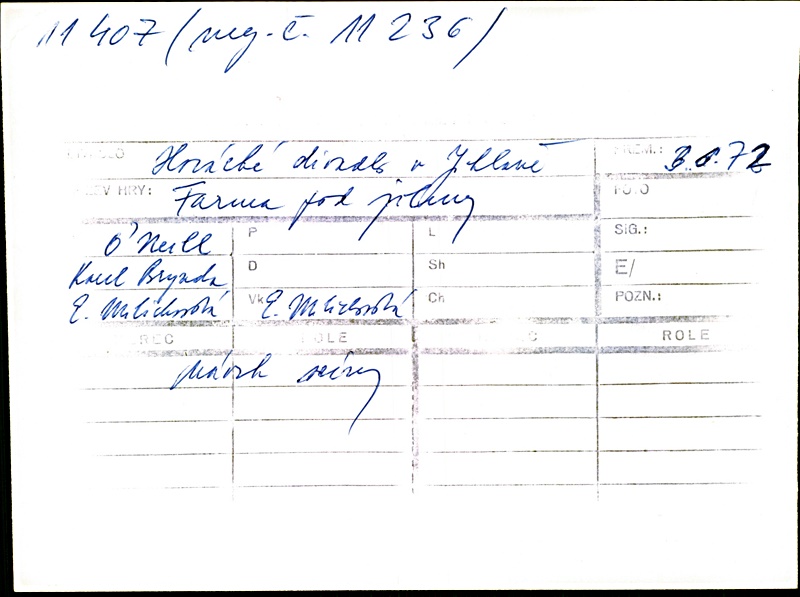 11 407 (neg. č. 11 236)
Horácké divadlo v Jihlavě PREM.: 3.6.72
ZEV HRY: Farma pod jilmy FOTO
O'Neill P L SIG.:
Karel Brynda D Sh E/
E. Milichovská Vk E. Milichovská Ch POZN.:
HEREC ROLE HEREC ROLE
návrh scény